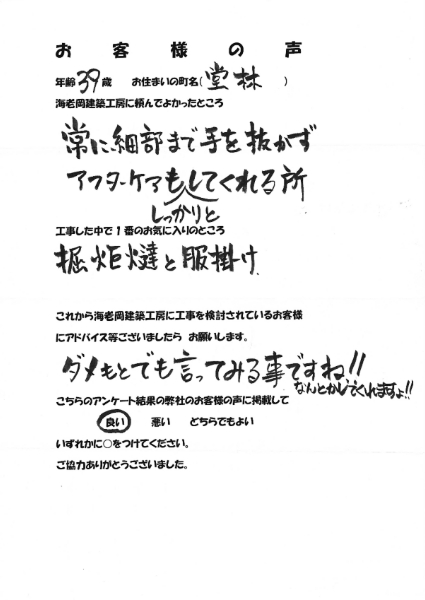 お客様の声
年齢 39 歳　お住まいの町名(堂林)
海老岡建築工房に頼んでよかったところ
常に細部まで手を抜かず
アフターケアもしっかりとしてくれる所
工事した中で1番のお気に入りのところ
掘炬燵と服掛け
これから海老岡建築工房に工事を検討されているお客様
にアドバイス等ございましたら お願いします。
ダメもとでも言ってみる事ですね!!
なんとかしてくれますよ!!
こちらのアンケート結果の弊社のお客様の声に掲載して
良い　悪い　どちらでもよい
いずれかに○をつけてください。
ご協力ありがとうございました。